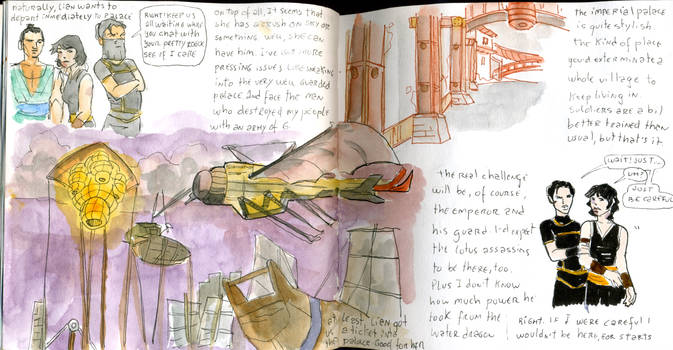 naturally, Lien wants to
depart inmediately to palace
RIGHT! KEEP US
ALL WAITING WHILE
YOU CHAT WITH
YOUR PRETTY
SEE IF I CARE
on top of all, It seems that
she has a crush on Sky or
something. Well, she can
have him. I've got more
pressing issues like sneaking
into the very well guarded
palace and face the man
who destroyed my people
with an army of 6.
the imperial palace
is quite stylish
the kind of place
you'd exterminate a
whole village to
keep living in
soldiers are a bit
better trained than
usual, but that's it
the real challenge
will be, of course,
the emperor and
his guard I'd expect
the lotus assassins
to be there, too.
Plus I don't know
how much power he
took from the
water dragon
WAIT! JUST...
UH?
JUST
BE CAREFUL
Right. If I were careful I
wouldn't be here, for starts
at least, Lien got
us a ticket into
the palace Good for her